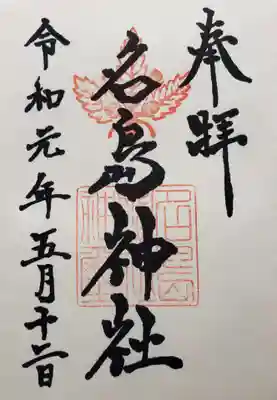 奉拝
名島神社
令和元年五月十日
名島
神社